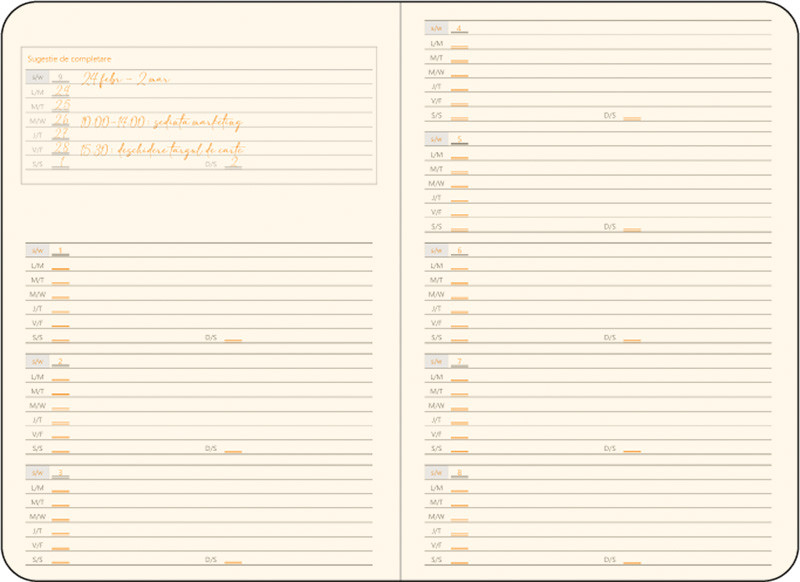 Sugestie de completare
s/w 9 24 febr - 2 mar
L/M 24
M/T 25
M/W 26 10:00-14:00: sedinta marketing
J/T 27
V/F 28 15.30: deschidere targul de carte
S/S 1 D/S 2
s/w 1
L/M
M/T
M/W
J/T
V/F
S/S D/S
s/w 2
L/M
M/T
M/W
J/T
V/F
S/S D/S
s/w 3
L/M
M/T
M/W
J/T
V/F
S/S D/S
s/w 4
L/M
M/T
M/W
J/T
V/F
S/S D/S
s/w 5
L/M
M/T
M/W
J/T
V/F
S/S D/S
s/w 6
L/M
M/T
M/W
J/T
V/F
S/S D/S
s/w 7
L/M
M/T
M/W
J/T
V/F
S/S D/S
s/w 8
L/M
M/T
M/W
J/T
V/F
S/S D/S